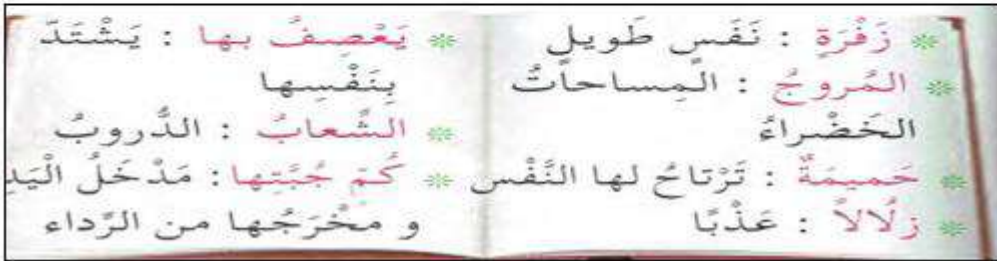 * زَفْرَةٍ : نَفَسٍ طَويلٍ
* المُروجُ : الْمِساحاتُ
الخَضْراءُ
* حَميمَةٌ : تَرْتاحُ لها النَّفْس
* زلُالاً : عَذْبًا
* يَعْصِفُ بها : يَشْتَدّ
بِنَفْسِها
* الشِّعابُ : الدُّروبُ
* كُمّ جُبَّتِها : مَدْخَلُ الْيَدِ
و مخْرَجُها من الرِّداء